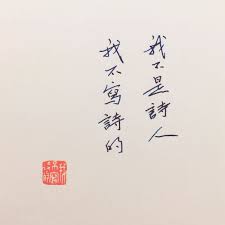 我不是詩人
我不寫詩的